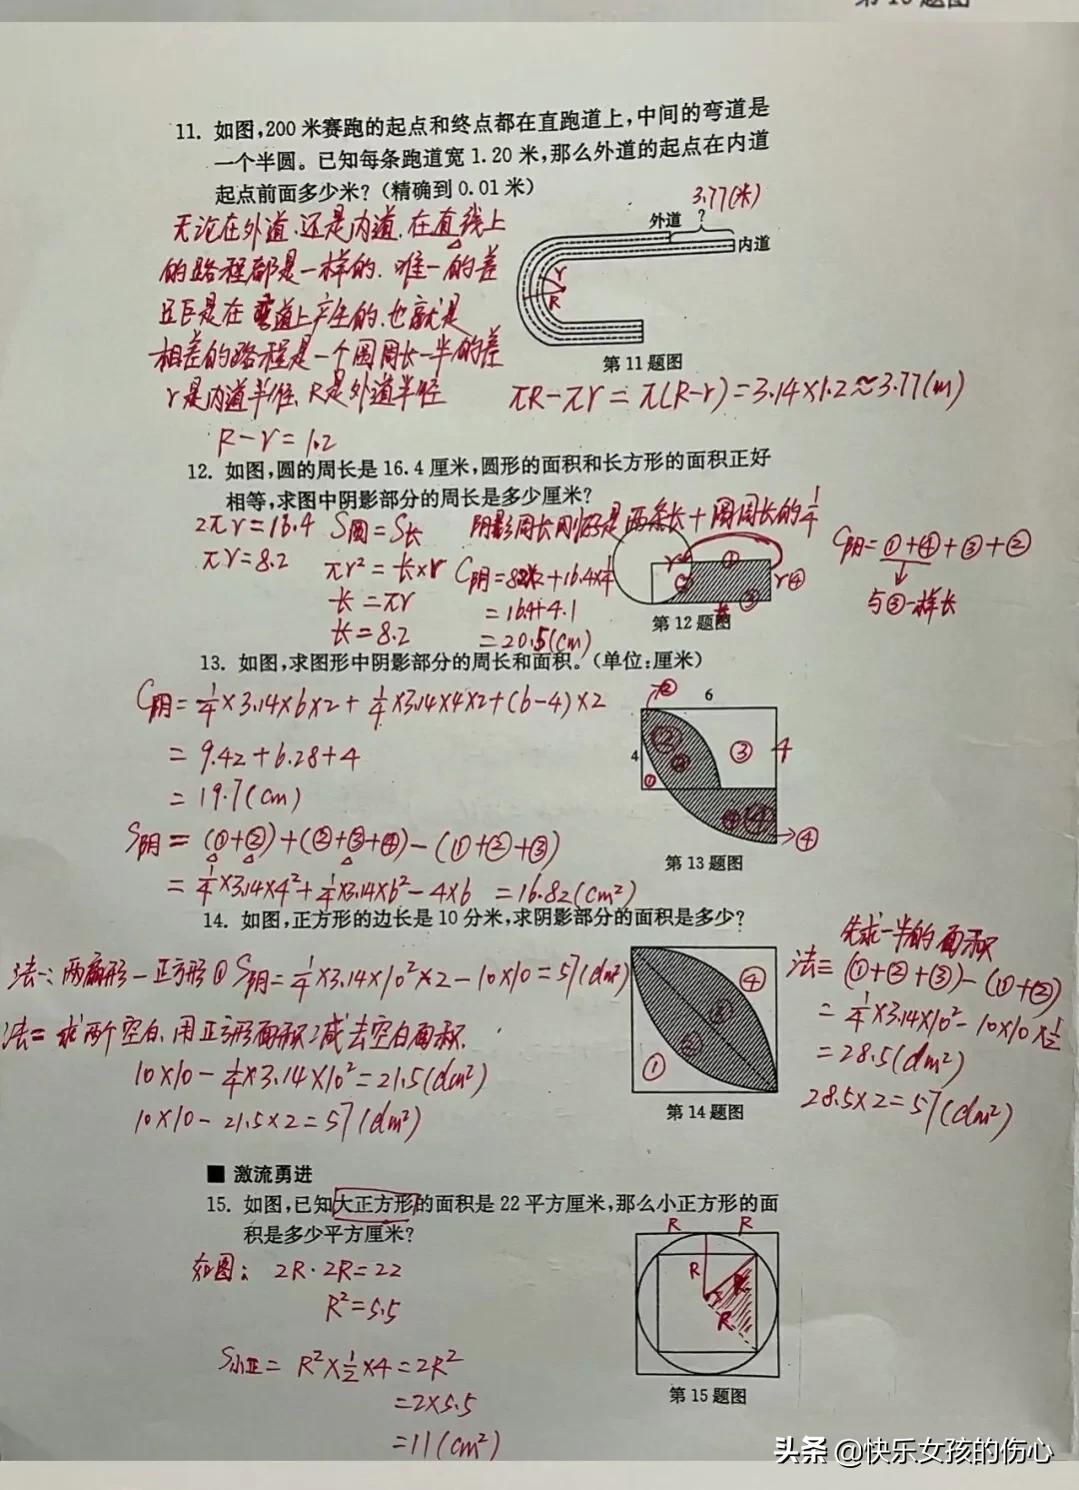 第10题图
11. 如图,200米赛跑的起点和终点都在直跑道上,中间的弯道是
一个半圆。已知每条跑道宽1.20米,那么外道的起点在内道
起点前面多少米?(精确到0.01米)
3.77(米)
无论在外道.还是内道.在直线上
的路程都是一样的.唯一的差
距是在弯道上产生的.也就是
相差的路程是一个圆周长一半的差
r是内道半径、R是外道半径
R-r=1.2
外道
?
内道
r
R
第11题图
πR-πr=π(R-r)=3.14×1.2≈3.77(m)
12. 如图,圆的周长是16.4厘米,圆形的面积和长方形的面积正好
相等,求图中阴影部分的周长是多少厘米?
2πr=16.4
πr=8.2
S圆=S长
πr²=长×r
长=πr
长=8.2
阴影周长刚好是两条长+圆周长的1/4
C阴=8.2×2+16.4×1/4
=16.4+4.1
=20.5(cm)
r
①
②
③
r④
长
第12题图
C阴=①+④+③+②
与③一样长
13. 如图,求图形中阴影部分的周长和面积。(单位:厘米)
C阴=1/4×3.14×6×2+1/4×3.14×4×2+(6-4)×2
=9.42+6.28+4
=19.7(cm)
S阴=(①+②)+(②+③+④)-(①+②+③)
=1/4×3.14×4²+1/4×3.14×6²-4×6=16.82(cm²)
②
6
4
③
4
①
④
第13题图
14. 如图,正方形的边长是10分米,求阴影部分的面积是多少?
法一:两扇形-正方形 S阴=1/4×3.14×10²×2-10×10=57(dm²)
法二 求两个空白.用正方形面积减去空白面积.
10×10-1/4×3.14×10²=21.5(dm²)
10×10-21.5×2=57(dm²)
④
③
②
①
第14题图
先求一半的面积
法三 (①+②+③)-(①+②)
=1/4×3.14×10²-10×10×1/2
=28.5(dm²)
28.5×2=57(dm²)
■ 激流勇进
15. 如图,已知大正方形的面积是22平方厘米,那么小正方形的面
积是多少平方厘米?
如图: 2R·2R=22
R²=5.5
S小正=R²×1/2×4=2R²
=2×5.5
=11(cm²)
R
R
R
R
R
第15题图
头条 @快乐女孩的伤心